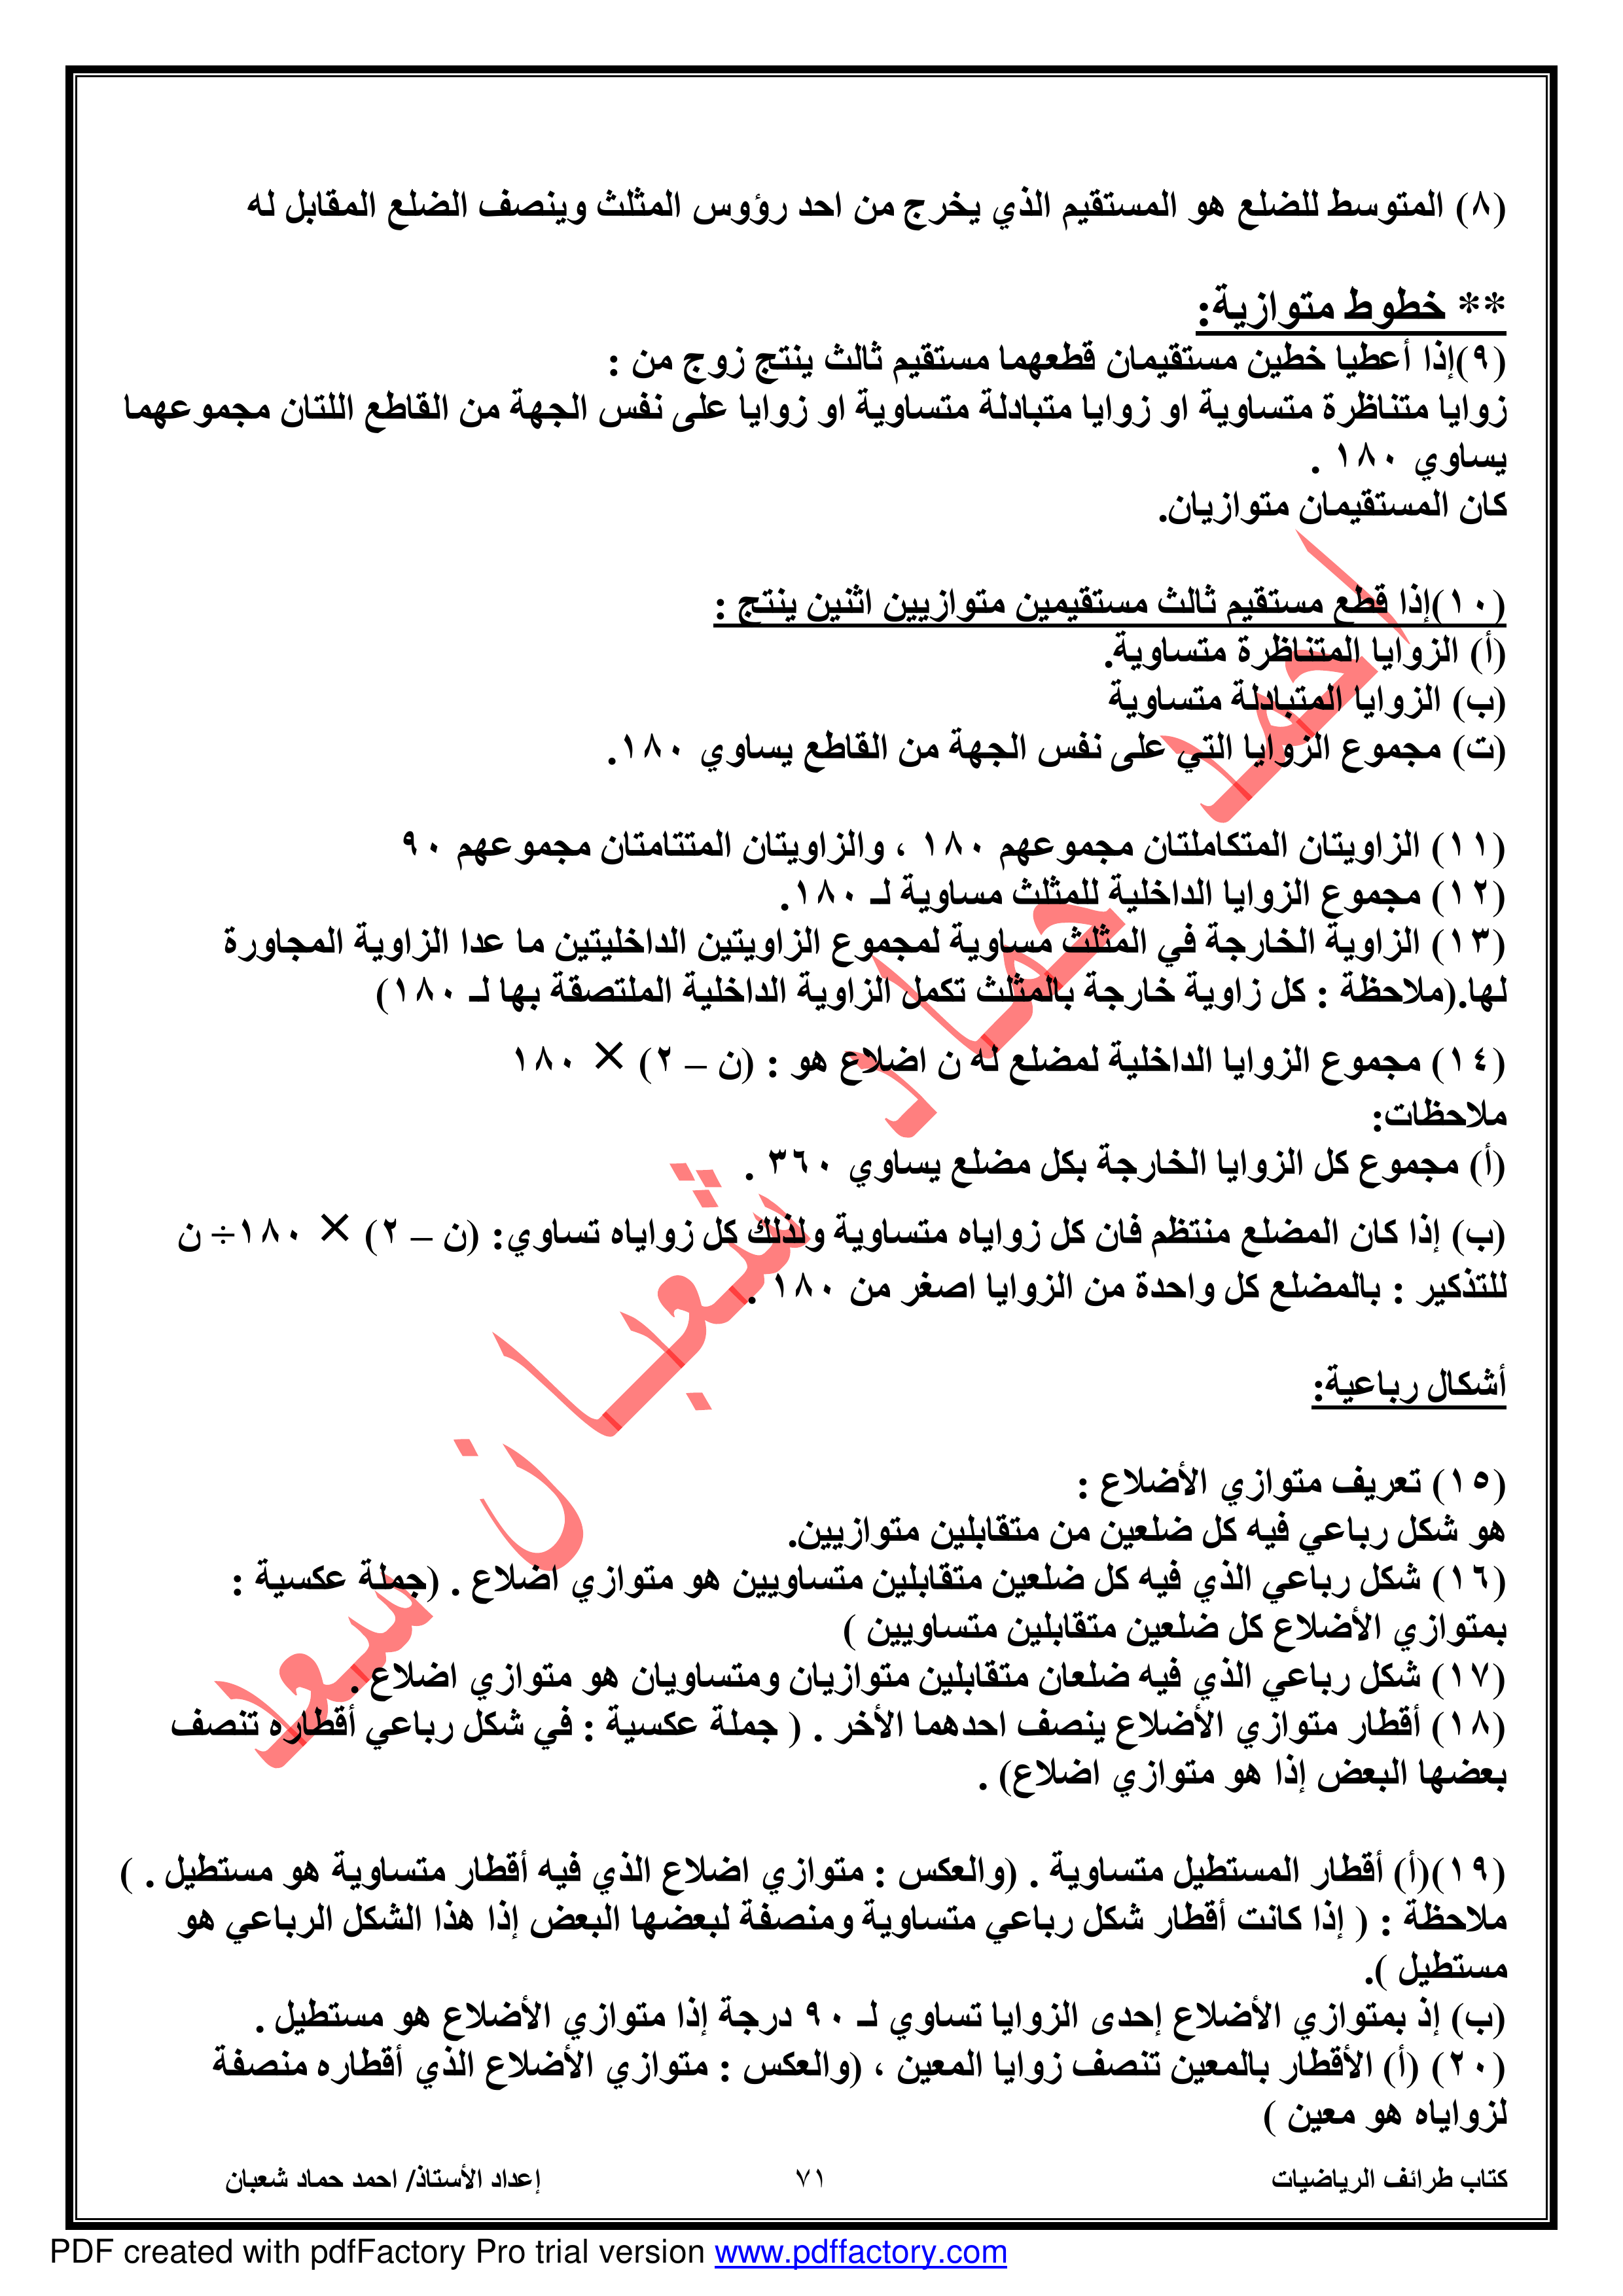 (٨) المتوسط للضلع هو المستقيم الذي يخرج من احد رؤوس المثلث وينصف الضلع المقابل له
** خطوط متوازية:
(٩)إذا أعطيا خطين مستقيمان قطعهما مستقيم ثالث ينتج زوج من :
زوايا متناظرة متساوية او زوايا متبادلة متساوية او زوايا على نفس الجهة من القاطع اللتان مجموعهما
يساوي ١٨٠ .
كان المستقيمان متوازيان.
(١٠)إذا قطع مستقيم ثالث مستقيمين متوازيين اثنين ينتج :
(أ) الزوايا المتناظرة متساوية.
(ب) الزوايا المتبادلة متساوية
(ت) مجموع الزوايا التي على نفس الجهة من القاطع يساوي ١٨٠.
(١١) الزاويتان المتكاملتان مجموعهم ١٨٠ ، والزاويتان المتتامتان مجموعهم ٩٠
(١٢) مجموع الزوايا الداخلية للمثلث مساوية لـ ١٨٠.
(١٣) الزاوية الخارجة في المثلث مساوية لمجموع الزاويتين الداخليتين ما عدا الزاوية المجاورة
لها.(ملاحظة : كل زاوية خارجة بالمثلث تكمل الزاوية الداخلية الملتصقة بها لـ ١٨٠)
(١٤) مجموع الزوايا الداخلية لمضلع له ن اضلاع هو : (ن – ٢) × ١٨٠
ملاحظات:
(أ) مجموع كل الزوايا الخارجة بكل مضلع يساوي ٣٦٠ .
(ب) إذا كان المضلع منتظم فان كل زواياه متساوية ولذلك كل زواياه تساوي: (ن – ٢) × ١٨٠÷ ن
للتذكير : بالمضلع كل واحدة من الزوايا اصغر من ١٨٠ .
أشكال رباعية:
(١٥) تعريف متوازي الأضلاع :
هو شكل رباعي فيه كل ضلعين من متقابلين متوازيين.
(١٦) شكل رباعي الذي فيه كل ضلعين متقابلين متساويين هو متوازي اضلاع . (جملة عكسية :
بمتوازي الأضلاع كل ضلعين متقابلين متساويين )
(١٧) شكل رباعي الذي فيه ضلعان متقابلين متوازيان ومتساويان هو متوازي اضلاع .
(١٨) أقطار متوازي الأضلاع ينصف احدهما الأخر . ( جملة عكسية : في شكل رباعي أقطاره تنصف
بعضها البعض إذا هو متوازي اضلاع) .
(١٩)(أ) أقطار المستطيل متساوية . (والعكس : متوازي اضلاع الذي فيه أقطار متساوية هو مستطيل . )
ملاحظة : ( إذا كانت أقطار شكل رباعي متساوية ومنصفة لبعضها البعض إذا هذا الشكل الرباعي هو
مستطيل ).
(ب) إذ بمتوازي الأضلاع إحدى الزوايا تساوي لـ ٩٠ درجة إذا متوازي الأضلاع هو مستطيل .
(٢٠) (أ) الأقطار بالمعين تنصف زوايا المعين ، (والعكس : متوازي الأضلاع الذي أقطاره منصفة
لزواياه هو معين )
احمد حماد شعبان سعد
كتاب طرائف الرياضيات ٧١ إعداد الأستاذ/ احمد حماد شعبان
PDF created with pdfFactory Pro trial version www.pdffactory.com